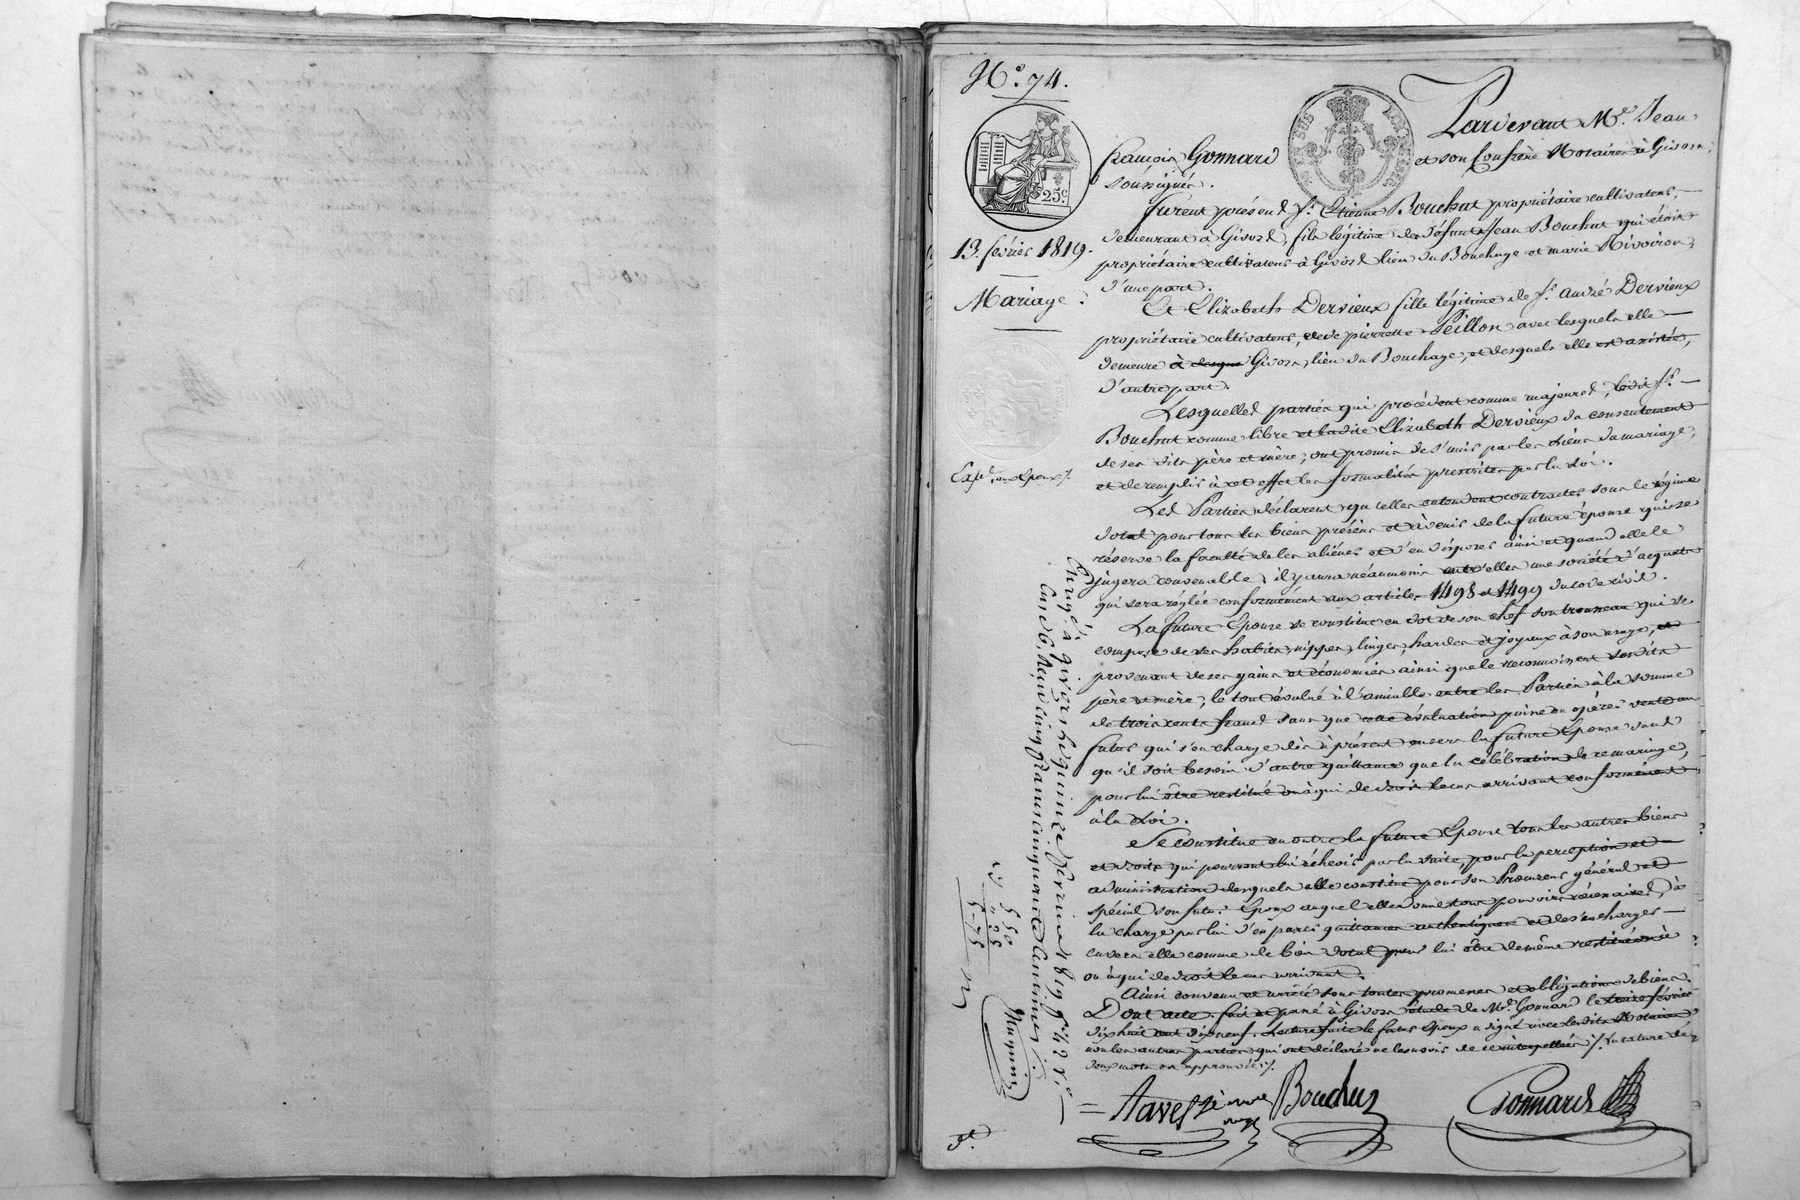 N.° 74.
Pardevant M.e Jean
françois Gonnard et son Confrère Notaires à Givors,
soussignés.
25c.
13. février 1819.
Mariage.
Expé. aux époux /.
furent présens S.r Etienne Bouchut propriétaire cultivateur,
demeurant à Givors, fils légitime de défunts Jean Bouchut qui étoit
propriétaire cultivateur à Givors lieu du Bouchage et marie Rivoiron,
d'une part.
Et Elizabeth Dervieux fille légitime de S.r André Dervieux
propriétaire cultivateur, et de pierrette Peillon avec lesquels elle
demeure à Givors, lieu du Bouchage, et desquels elle est assistée,
d'autre part.
Lesquelles parties qui procèdent comme majeures, ledit S.r
Bouchut comme libre et ladite Elizabeth Dervieux du consentement
de ses dits père et mère, ont promis de s'unir par les liens du mariage,
et de remplir à cet effet les formalités prescrites par la loi.
Les Parties déclarent qu'elles entendent contracter sous le régime
dotal pour tous les biens présens et à venir de la future épouse qui se
réserve la faculté de les aliéner et d'en disposer ainsi et quand elle le
jugera convenable, il y aura néanmoins entr'elles une société d'acquets
qui sera réglée conformément aux articles 1498 et 1499 du code civil.
La future Epouse se constitue en dot de son chef son trousseau qui se
compose de ses habits, nippes, linges, hardes et joyaux à son usage,
provenant de ses gains et économies ainsi que le reconnoissent sesdits
père et mère, le tout évalué à l'amiable entre les Parties à la somme
de trois cents francs sans que cette évaluation puisse en opérer vente au
futur qui s'en charge dès à présent envers la future Epouse sans
qu'il soit besoin d'autre quittance que la célébration de ce mariage,
pour lui être restitué ou à qui de droit le cas arrivant conformément
à la Loi.
Se constitue en outre la future Epouse tous les autres biens
et droits qui pourront lui échoir par la suite, pour la perception et
administration desquels elle constitue pour son Procureur général et
spécial son futur Epoux auquel elle donne tous pouvoirs nécessaires, à
la charge par lui d'en passer quittances authentiques et de s'en charger
envers elle comme de bien dotal pour lui être de même restitué
ou à qui de droit le cas arrivant.
Ainsi convenu et arrêté sous toutes promesses et obligations de biens.
Dont acte. fait et passé à Givors étude de M.e Gonnard le treize février
dix huit cent dix neuf. Lecture faite le futur Epoux a signé avec lesdits Notaires
non les autres parties qui ont déclaré ne le savoir de ce interpellées /. rature de
deux mots est approuvée /.
Bouchut
Gonnard
Enreg.é à givors le quinze février 1819. f.o 42 v.o
Case 6. Reçu cinq francs cinquante centimes
5 50
" 25
5-75